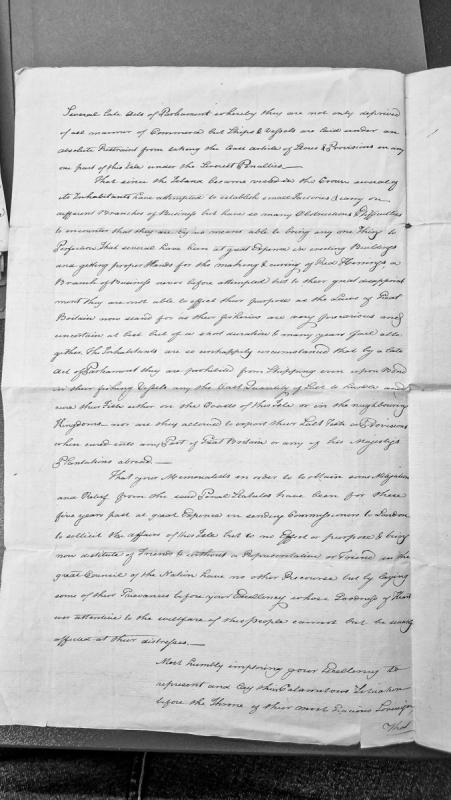 Several late Acts of Parliament whereby they are not only deprived
of all manner of Commerce but Ships & Vessels are laid under an
absolute Restraint from taking the least article of Stores & Provisions in any
one part of this Isle under the severest Penalties.—
That since the Island became vested in the Crown several of
its Inhabitants have attempted to establish small Factories & carry on
different Branches of Business but have so many Obstructions & Difficulties
to encounter that they are by no means able to bring any one Thing to
Perfection That several have been at great Expence in erecting Buildings
and getting proper Hands for the making & curing of Red Herrings a
Branch of Business never before attempted but to their great disappoint
ment they are not able to effect their purpose as the Laws of Great
Britain now stand for as their fisheries are very precarious and
uncertain at best but of a short duration & many years fail alto
gether. The Inhabitants are so unhappily circumstanced that by a late
Act of Parliament they are prohibited from Shipping even upon Bord
in their fishing Vessels any the least Quantity of Salt to and
cure their Fish either on the Coasts of this Isle or in the neighbouring
Kingdoms nor are they allowed to export their Salt Fish or Provisions
when cured into any Part of Great Britain or any of his Majestys
Plantations abroad.—
That your Memorialists in order to to obtain some Mitigation
and Relief from the said Penal Statutes have been for these
five years past at great Expence in sending Commissioners to London
to sollicit the affairs of this Isle but to no Effect or purpose & being
now distitute of Friends & without a Representation or Friend in the
great Council of the Nation have no other Recourse but by laying
some of their Grievances before your Excellency whose Goodness of Heart
ever attentive to the wellfare of this People cannot but be
affected at their distresses.—
Most humbly imploring your Excellency to
represent and lay this Calamitous Situation
before the Throne of their most Gracious Sovereign
That